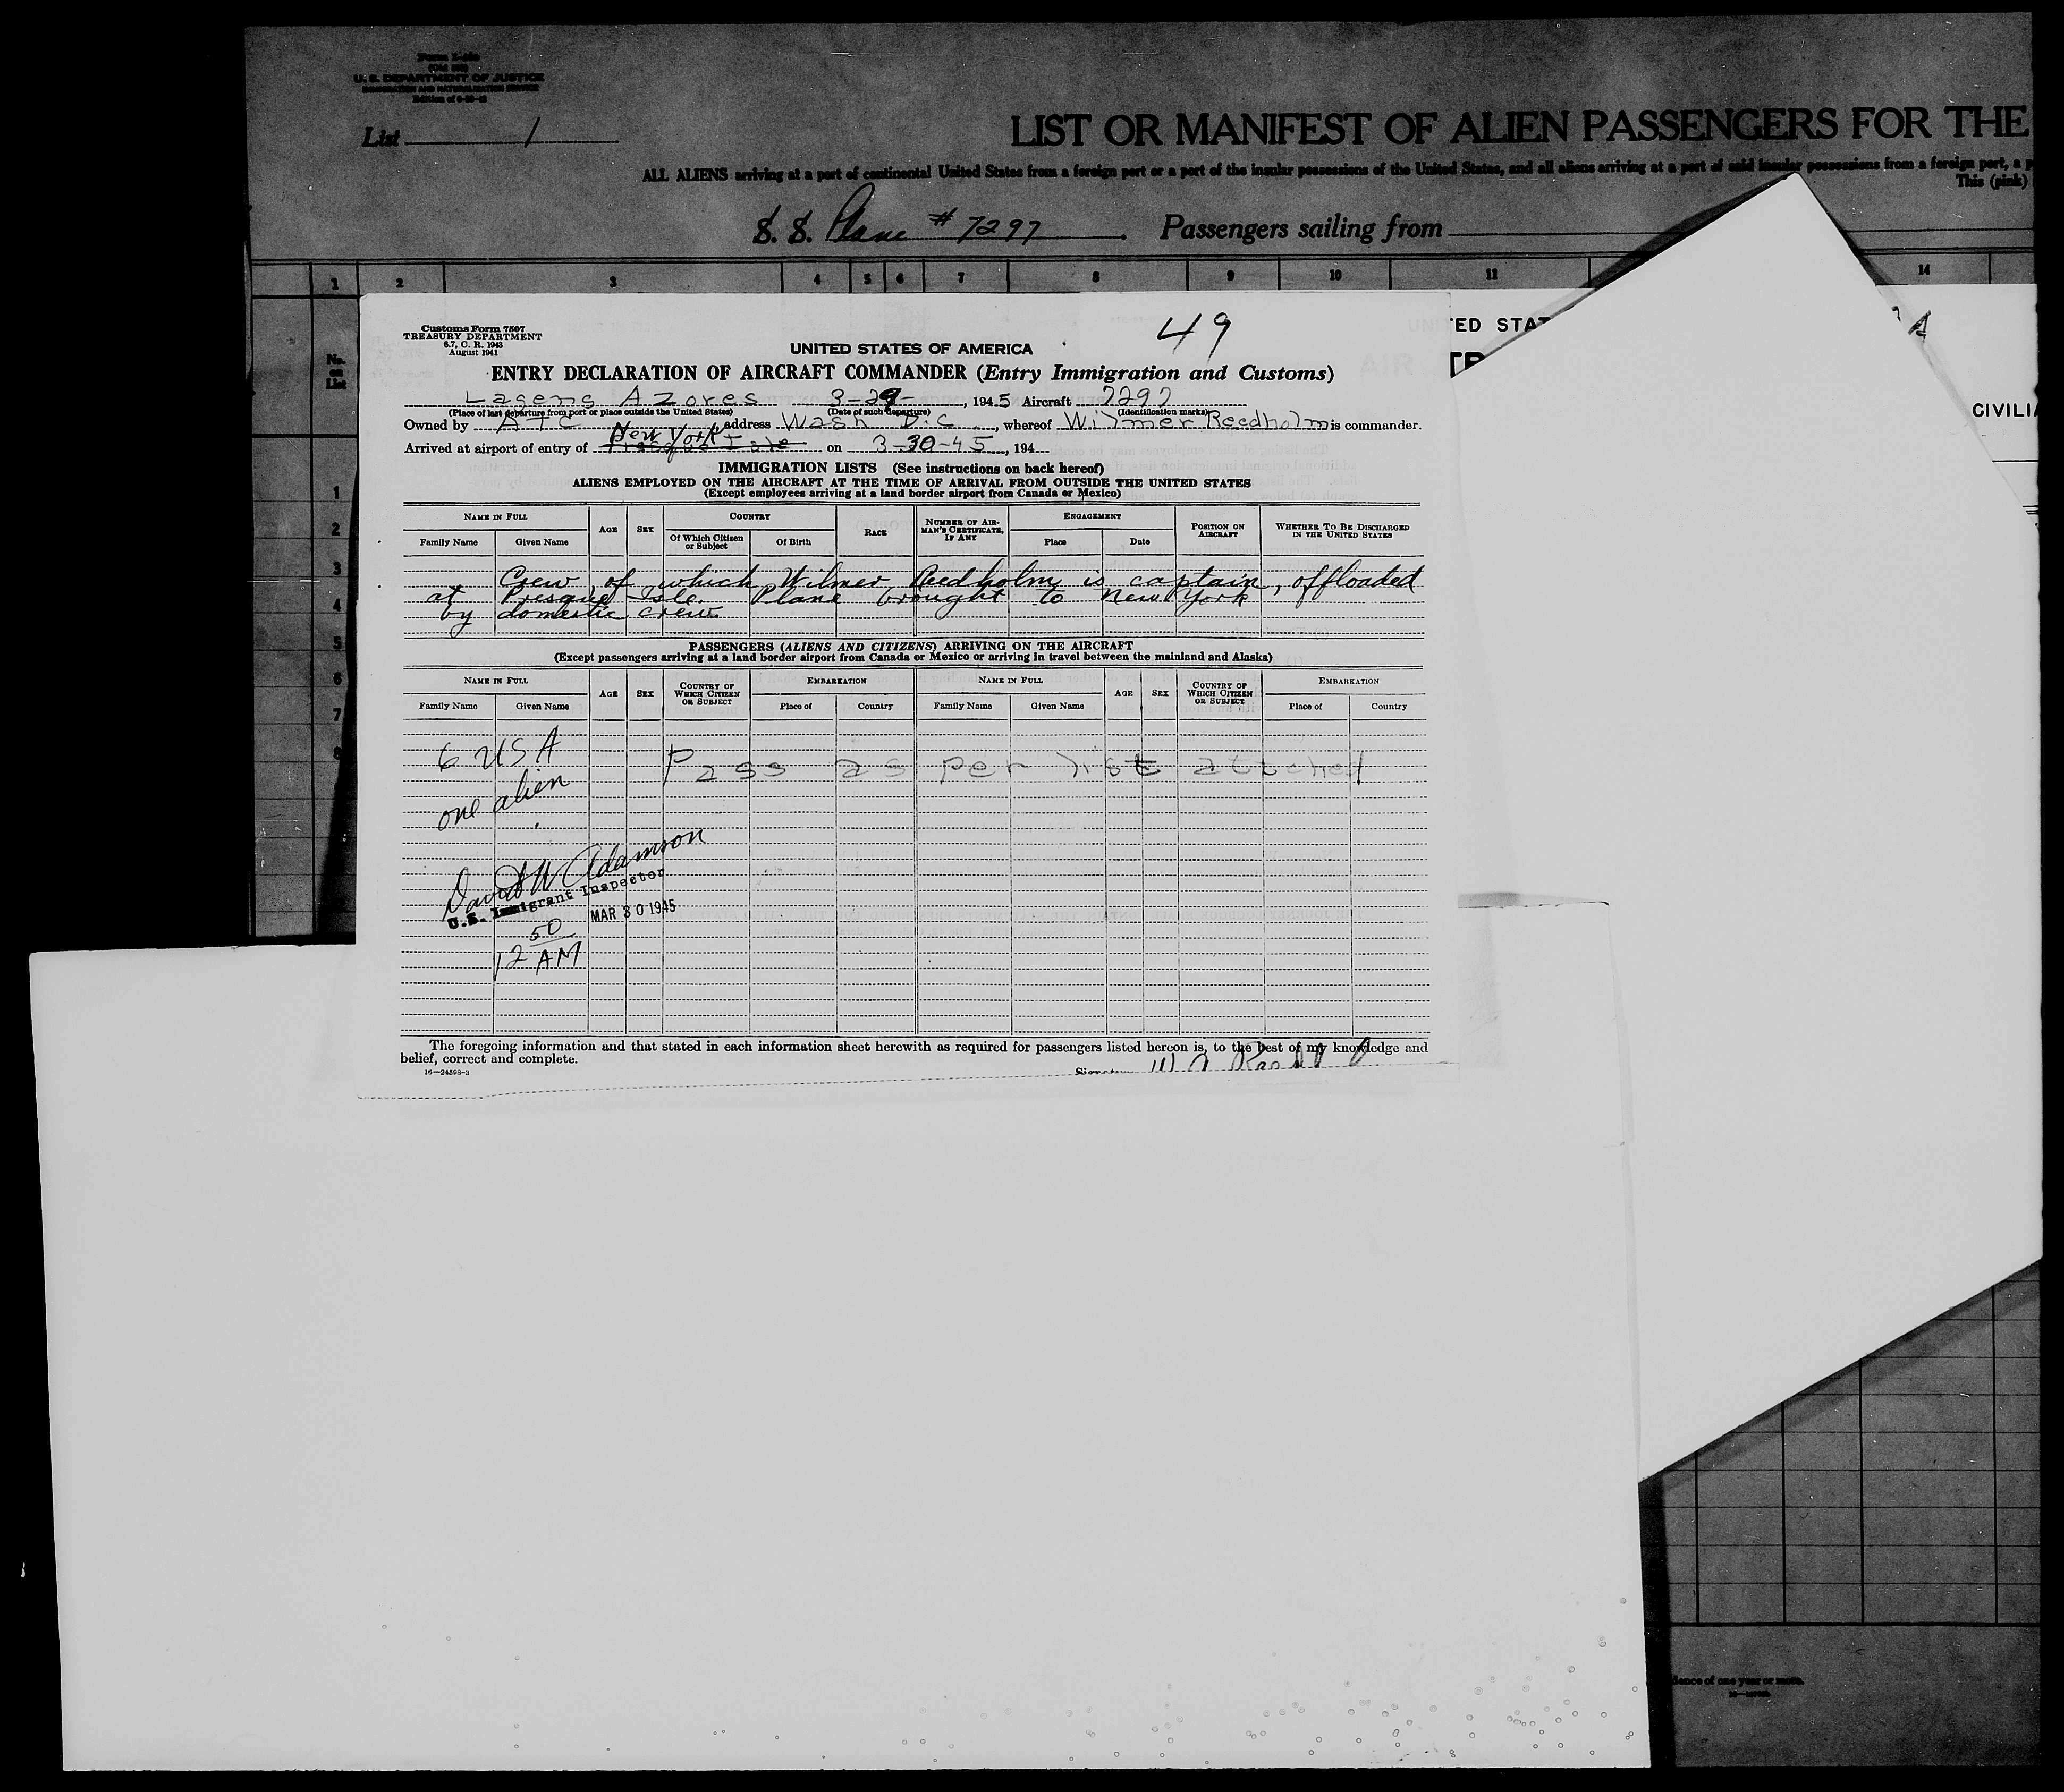 Form I-
(Old
U. S. DEPARTMENT OF JUSTICE
IMMIGRATION AND NATURALIZATION SERVICE
Edition of
List 1
LIST OR MANIFEST OF ALIEN PASSENGERS FOR THE
ALL ALIENS arriving at a port of continental United States from a foreign port or a port of the insular possessions of the United States, and all aliens arriving at a port of said insular possessions from a foreign port, a p
This (pink)
S. S. Plane # 7297. Passengers sailing from
1 2 3 4 5 6 7 8 9 10 11 14
No. on List
1
2
3
4
5
6
7
8
Customs Form 7507
TREASURY DEPARTMENT
6.7, C. R. 1943
August 1941
49
UNITED STATES OF AMERICA
ENTRY DECLARATION OF AIRCRAFT COMMANDER (Entry Immigration and Customs)
Lagens Azores 3-29-, 1945 Aircraft 7297
(Place of last departure from port or place outside the United States) (Date of such departure) (Identification marks)
Owned by ATC address Wash D.C., whereof Wilmer Reedholm is commander.
New York
Arrived at airport of entry of Presque Isle on 3-30-45, 194
IMMIGRATION LISTS (See instructions on back hereof)
ALIENS EMPLOYED ON THE AIRCRAFT AT THE TIME OF ARRIVAL FROM OUTSIDE THE UNITED STATES
(Except employees arriving at a land border airport from Canada or Mexico)
NAME IN FULL AGE SEX COUNTRY RACE NUMBER OF AIRMAN'S CERTIFICATE, IF ANY ENGAGEMENT POSITION ON AIRCRAFT WHETHER TO BE DISCHARGED IN THE UNITED STATES
Family Name Given Name Of Which Citizen or Subject Of Birth Place Date
Crew, of which Wilmer Reedholm is captain, offloaded
at Presque Isle. Plane brought to New York
by domestic crew
PASSENGERS (ALIENS AND CITIZENS) ARRIVING ON THE AIRCRAFT
(Except passengers arriving at a land border airport from Canada or Mexico or arriving in travel between the mainland and Alaska)
NAME IN FULL AGE SEX COUNTRY OF WHICH CITIZEN OR SUBJECT EMBARKATION NAME IN FULL AGE SEX COUNTRY OF WHICH CITIZEN OR SUBJECT EMBARKATION
Family Name Given Name Place of Country Family Name Given Name Place of Country
6 USA
Pass as per list attached
one alien
David W Adamson
U.S. Immigrant Inspector
MAR 30 1945
12 50 AM
The foregoing information and that stated in each information sheet herewith as required for passengers listed hereon is, to the best of my knowledge and
belief, correct and complete.
16—24598-3
TED STAT
CIVILIA
dence of one year or more.